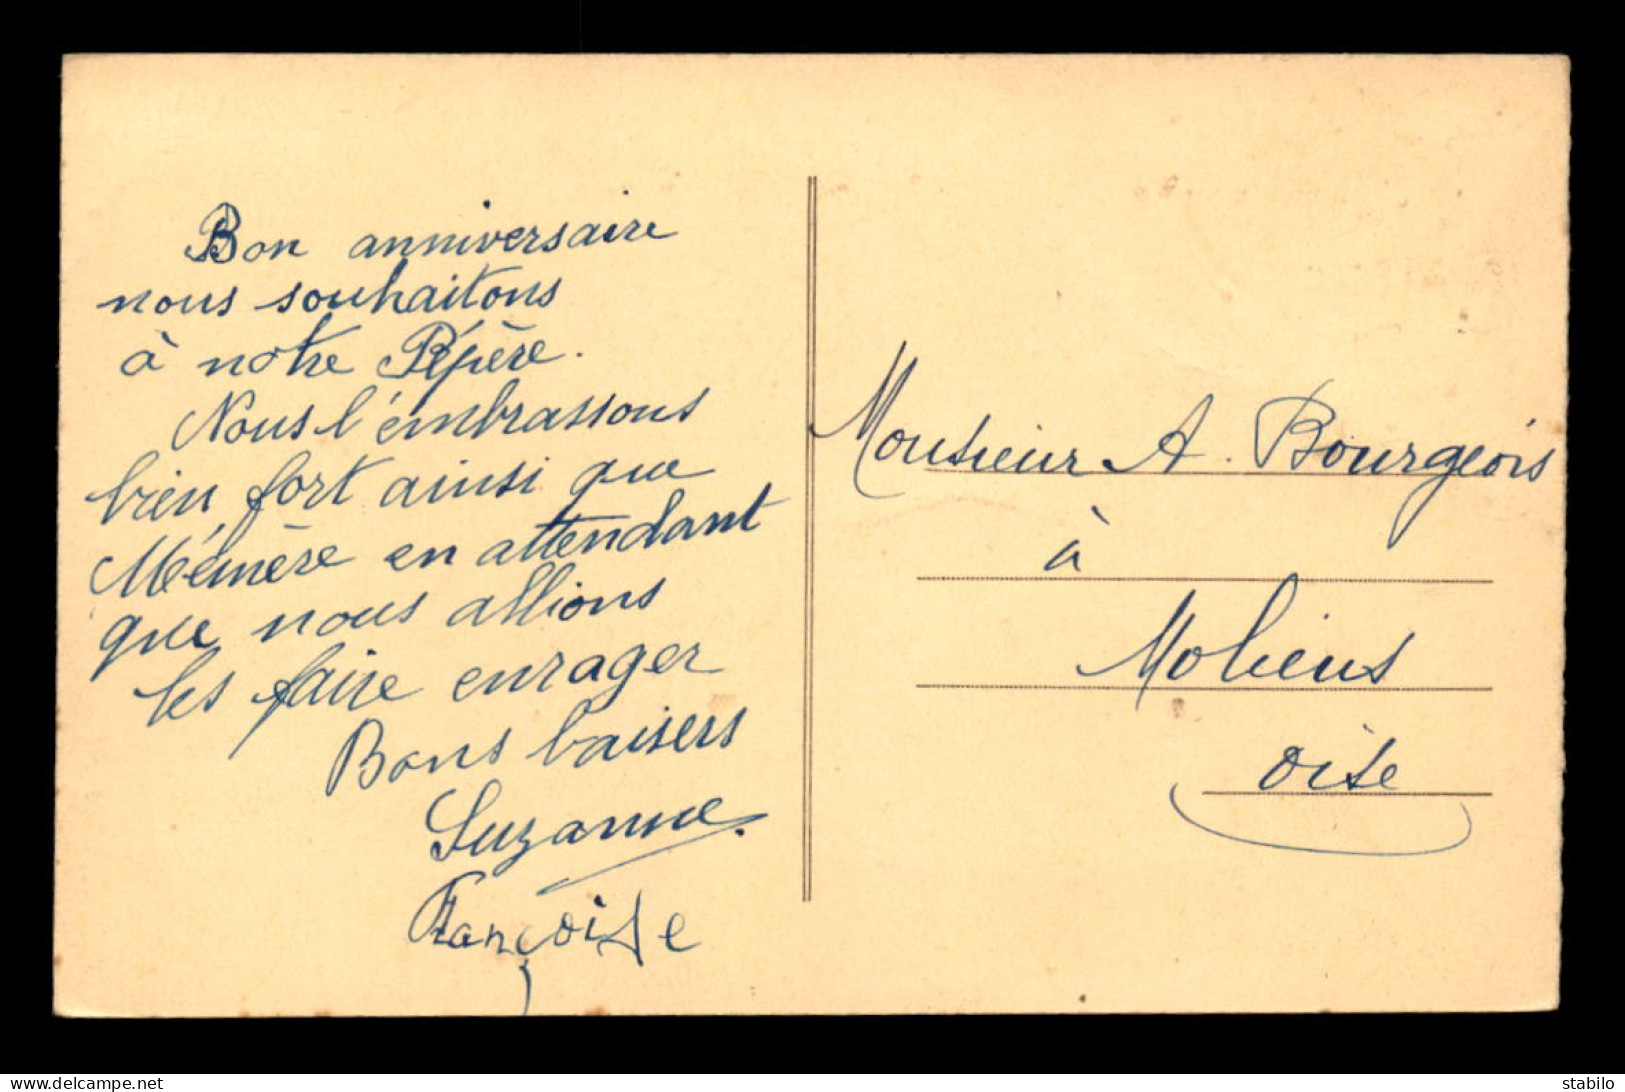 Bon anniversaire
nous souhaitons
à notre Pépère.
Nous l'embrassons
bien fort ainsi que
Mémère en attendant
que nous allions
les faire enrager
Bons baisers
Suzanne.
Françoise
Monsieur A. Bourgeois
à
Moliens
Oise
delcampe.net
stabilo